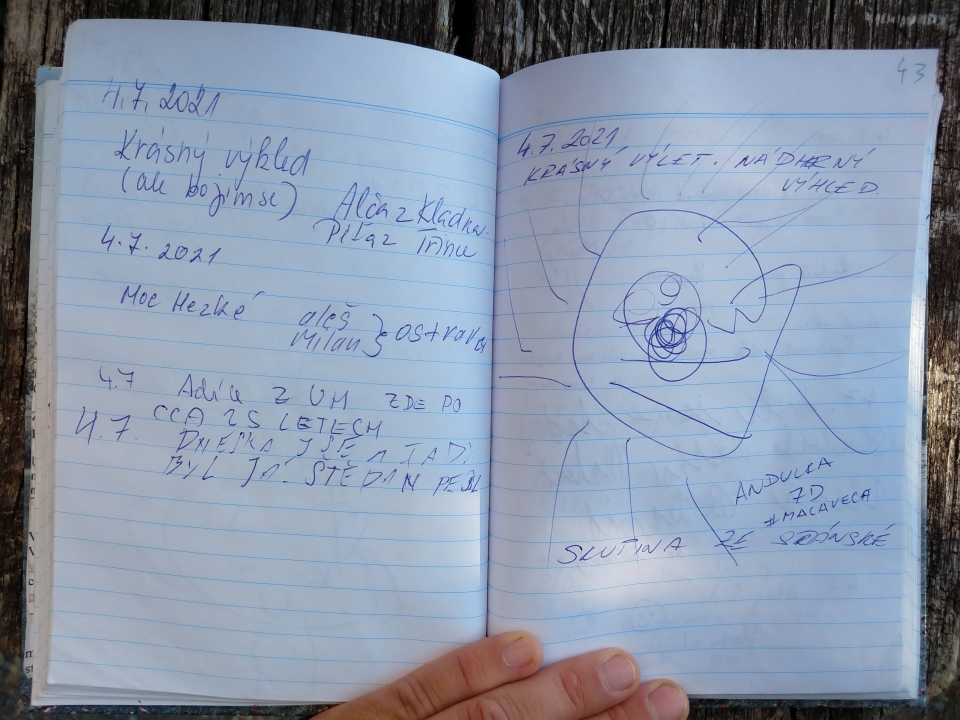 4.7.2021
Krásný výhled
(ale bojímse)
Alča z Kladna
Píťa z Třince
4.7.2021
Moc Hezké
aleš
Milan } OSTRAVA
4.7 Z UH ZDE PO
CCA 25 LETECH
4.7. DNESKA JSEM TADY
BYL JÁ. ŠTĚPÁN
43
4.7.2021
KRÁSNÝ VÝLET. NÁDHERNÝ
VÝHLED.
ANDULKA
7D
#MACAVECA
SKUTINA ZE